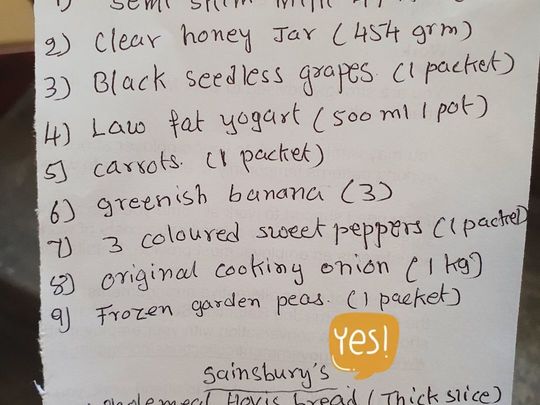 1) Semi Skim milk
2) Clear honey Jar (454 grm)
3) Black seedless grapes. (1 packet)
4) Law fat yogart (500 ml 1 pot)
5) carrots. (1 packet)
6) greenish banana (3)
7) 3 coloured sweet peppers (1 packet)
8) original cooking onion (1 kg)
9) Frozen garden peas. (1 packet)
Yes!
Sainsbury's
wholemeal Hovis bread (Thick slice)